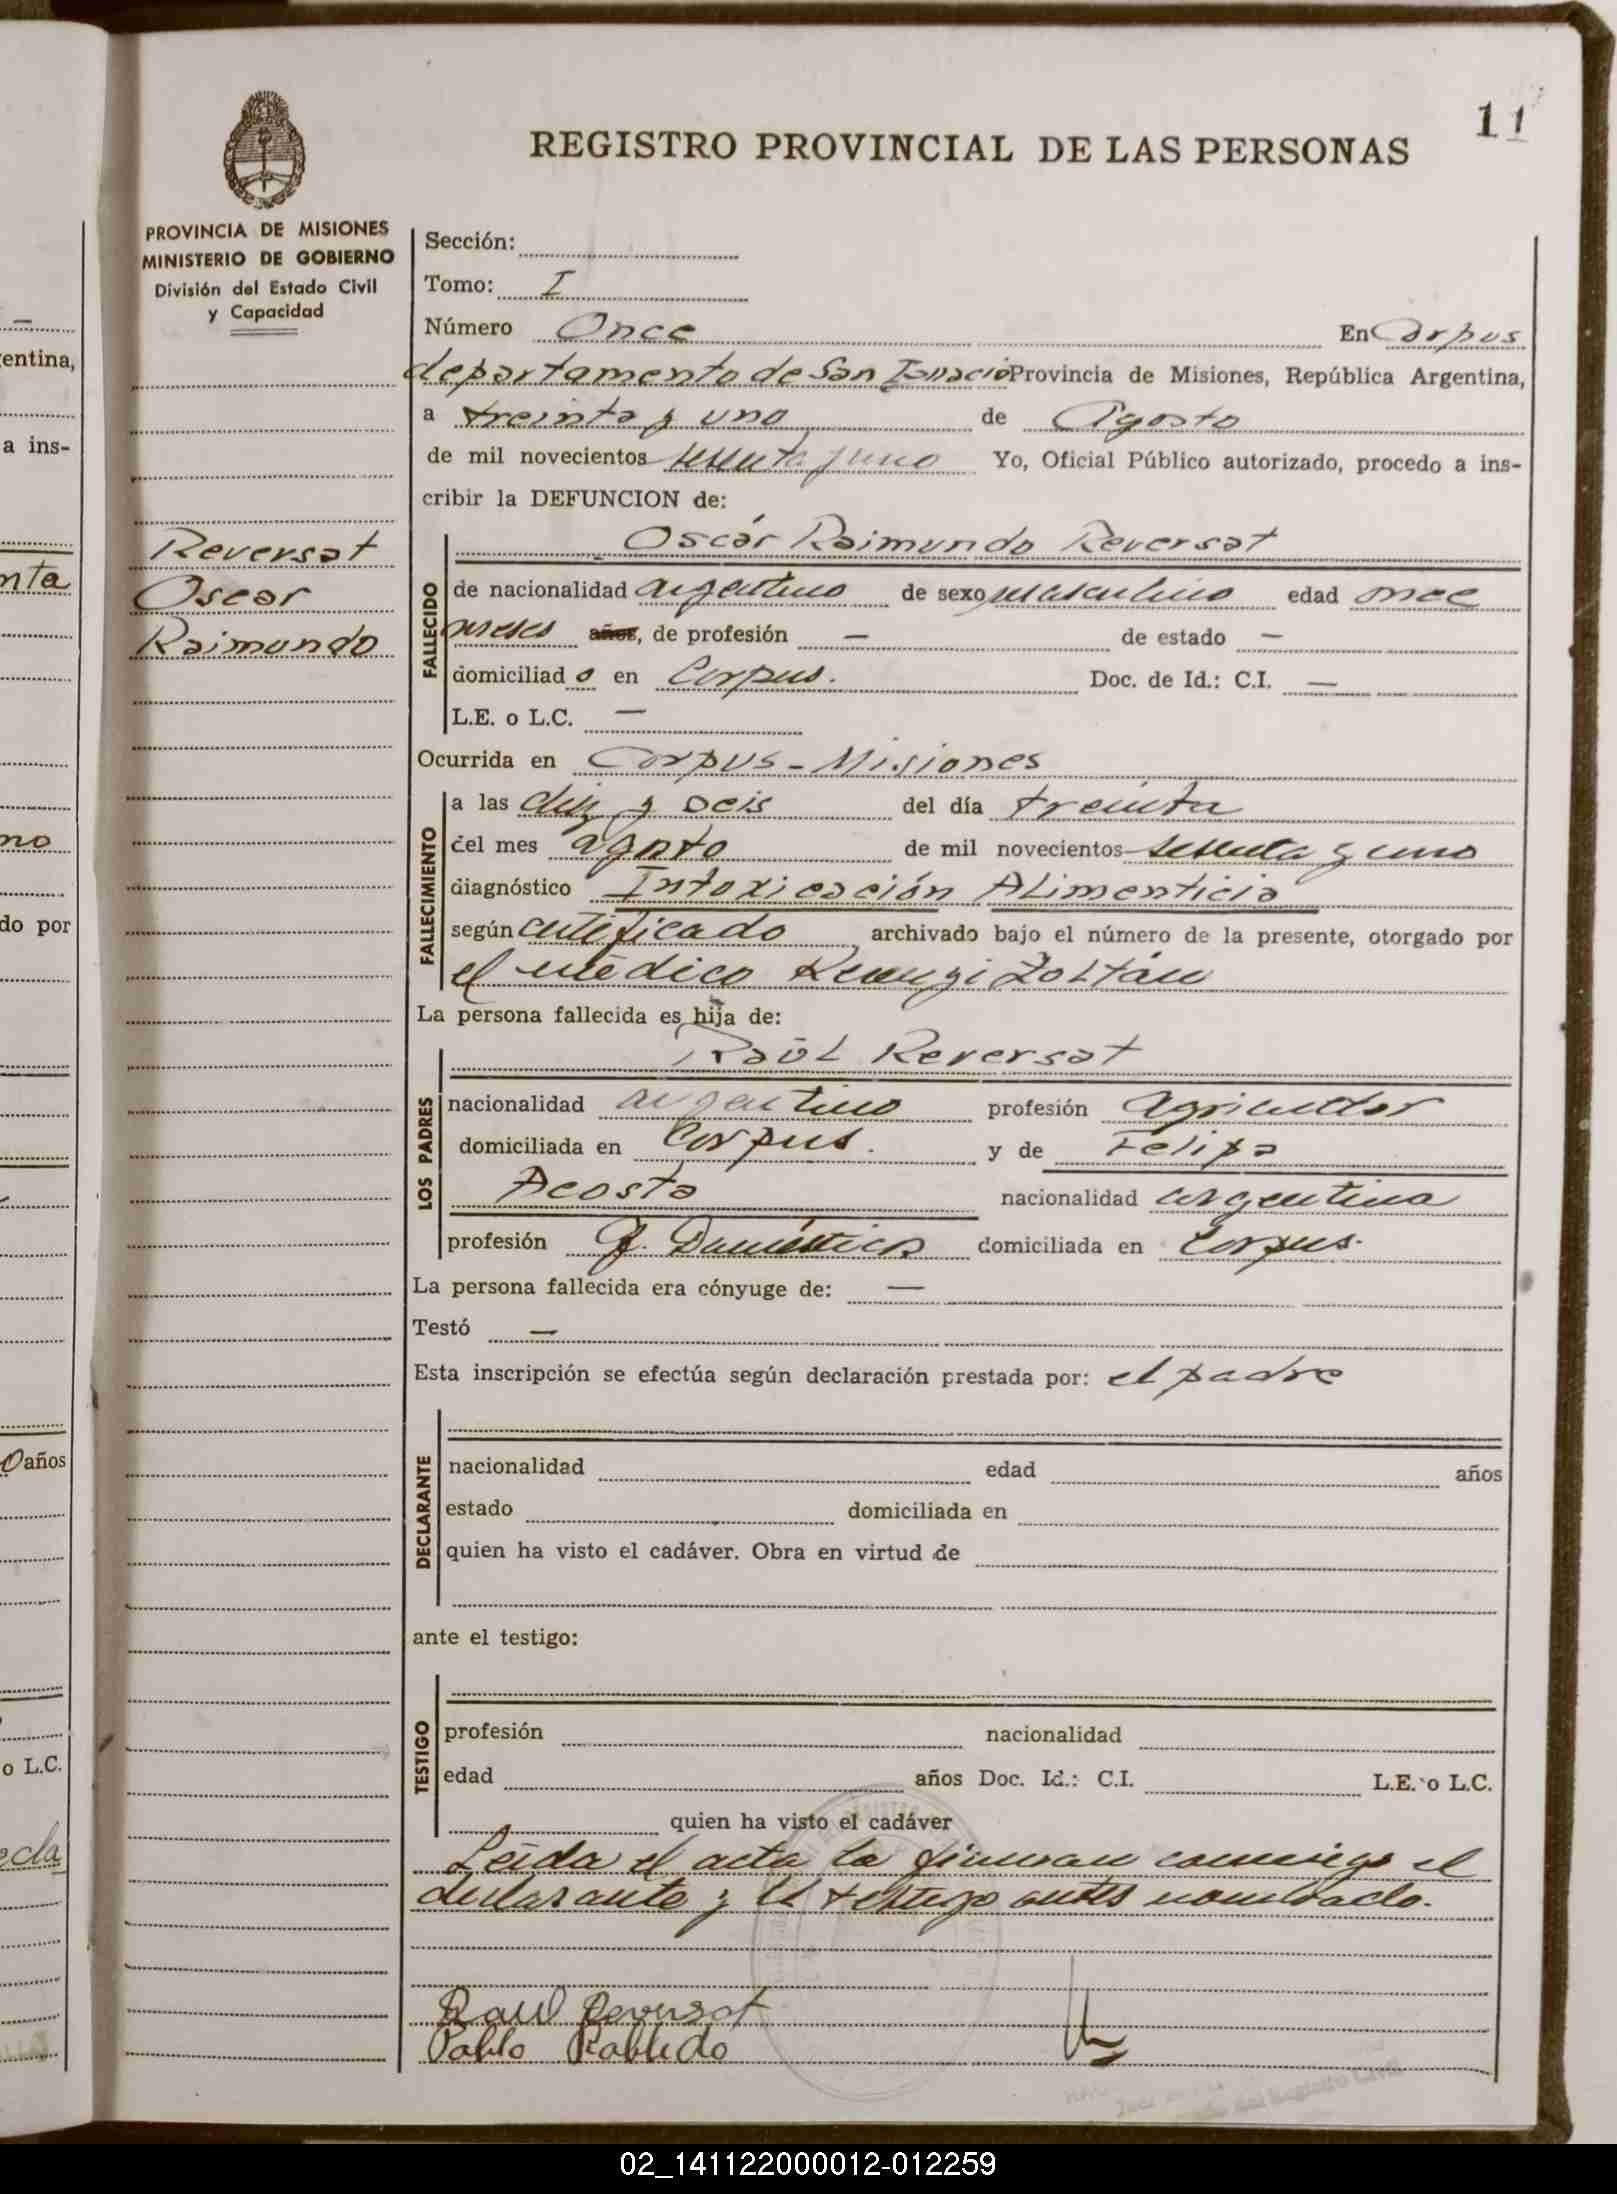 11
REGISTRO PROVINCIAL DE LAS PERSONAS
PROVINCIA DE MISIONES
MINISTERIO DE GOBIERNO
División del Estado Civil
y Capacidad
Reversat
Oscar
Raimundo
Sección:
Tomo: I
Número Once En Corpus
departamento de San Ignacio Provincia de Misiones, República Argentina,
a treinta y uno de Agosto
de mil novecientos sesenta y uno Yo, Oficial Público autorizado, procedo a ins-
cribir la DEFUNCION de:
Oscár Raimundo Reversat
FALLECIDO
de nacionalidad argentino de sexo masculino edad once
meses años, de profesión — de estado —
domiciliado en Corpus. Doc. de Id.: C.I. —
L.E. o L.C. —
Ocurrida en Corpus - Misiones
FALLECIMIENTO
a las diez y seis del día treinta
del mes agosto de mil novecientos sesenta y uno
diagnóstico Intoxicación Alimenticia
según certificado archivado bajo el número de la presente, otorgado por
el médico Zoltán
La persona fallecida es hija de:
Raúl Reversat
LOS PADRES
nacionalidad argentino profesión agricultor
domiciliada en Corpus. y de Felipa
Acosta nacionalidad argentina
profesión Q. Domésticos domiciliada en Corpus.
La persona fallecida era cónyuge de: —
Testó —
Esta inscripción se efectúa según declaración prestada por: el padre
DECLARANTE
nacionalidad edad años
estado domiciliada en
quien ha visto el cadáver. Obra en virtud de
ante el testigo:
TESTIGO
profesión nacionalidad
edad años Doc. Id.: C.I. L.E. o L.C.
quien ha visto el cadáver
Leída el acta la firman conmigo el
declarante y el testigo antes nombrado.
Raul Reversat
Pablo Robledo
entina,
a ins-
nta
no
do por
0 años
o L.C.
ecla
02_141122000012-012259